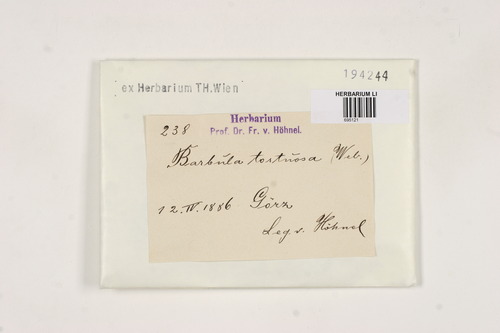 194244
ex Herbarium TH.Wien
HERBARIUM LI
595121
Herbarium
Prof. Dr. Fr. v. Höhnel.
238
Barbula tortuosa (Web.)
12.IV.1886 Görz
Leg v. Höhnel